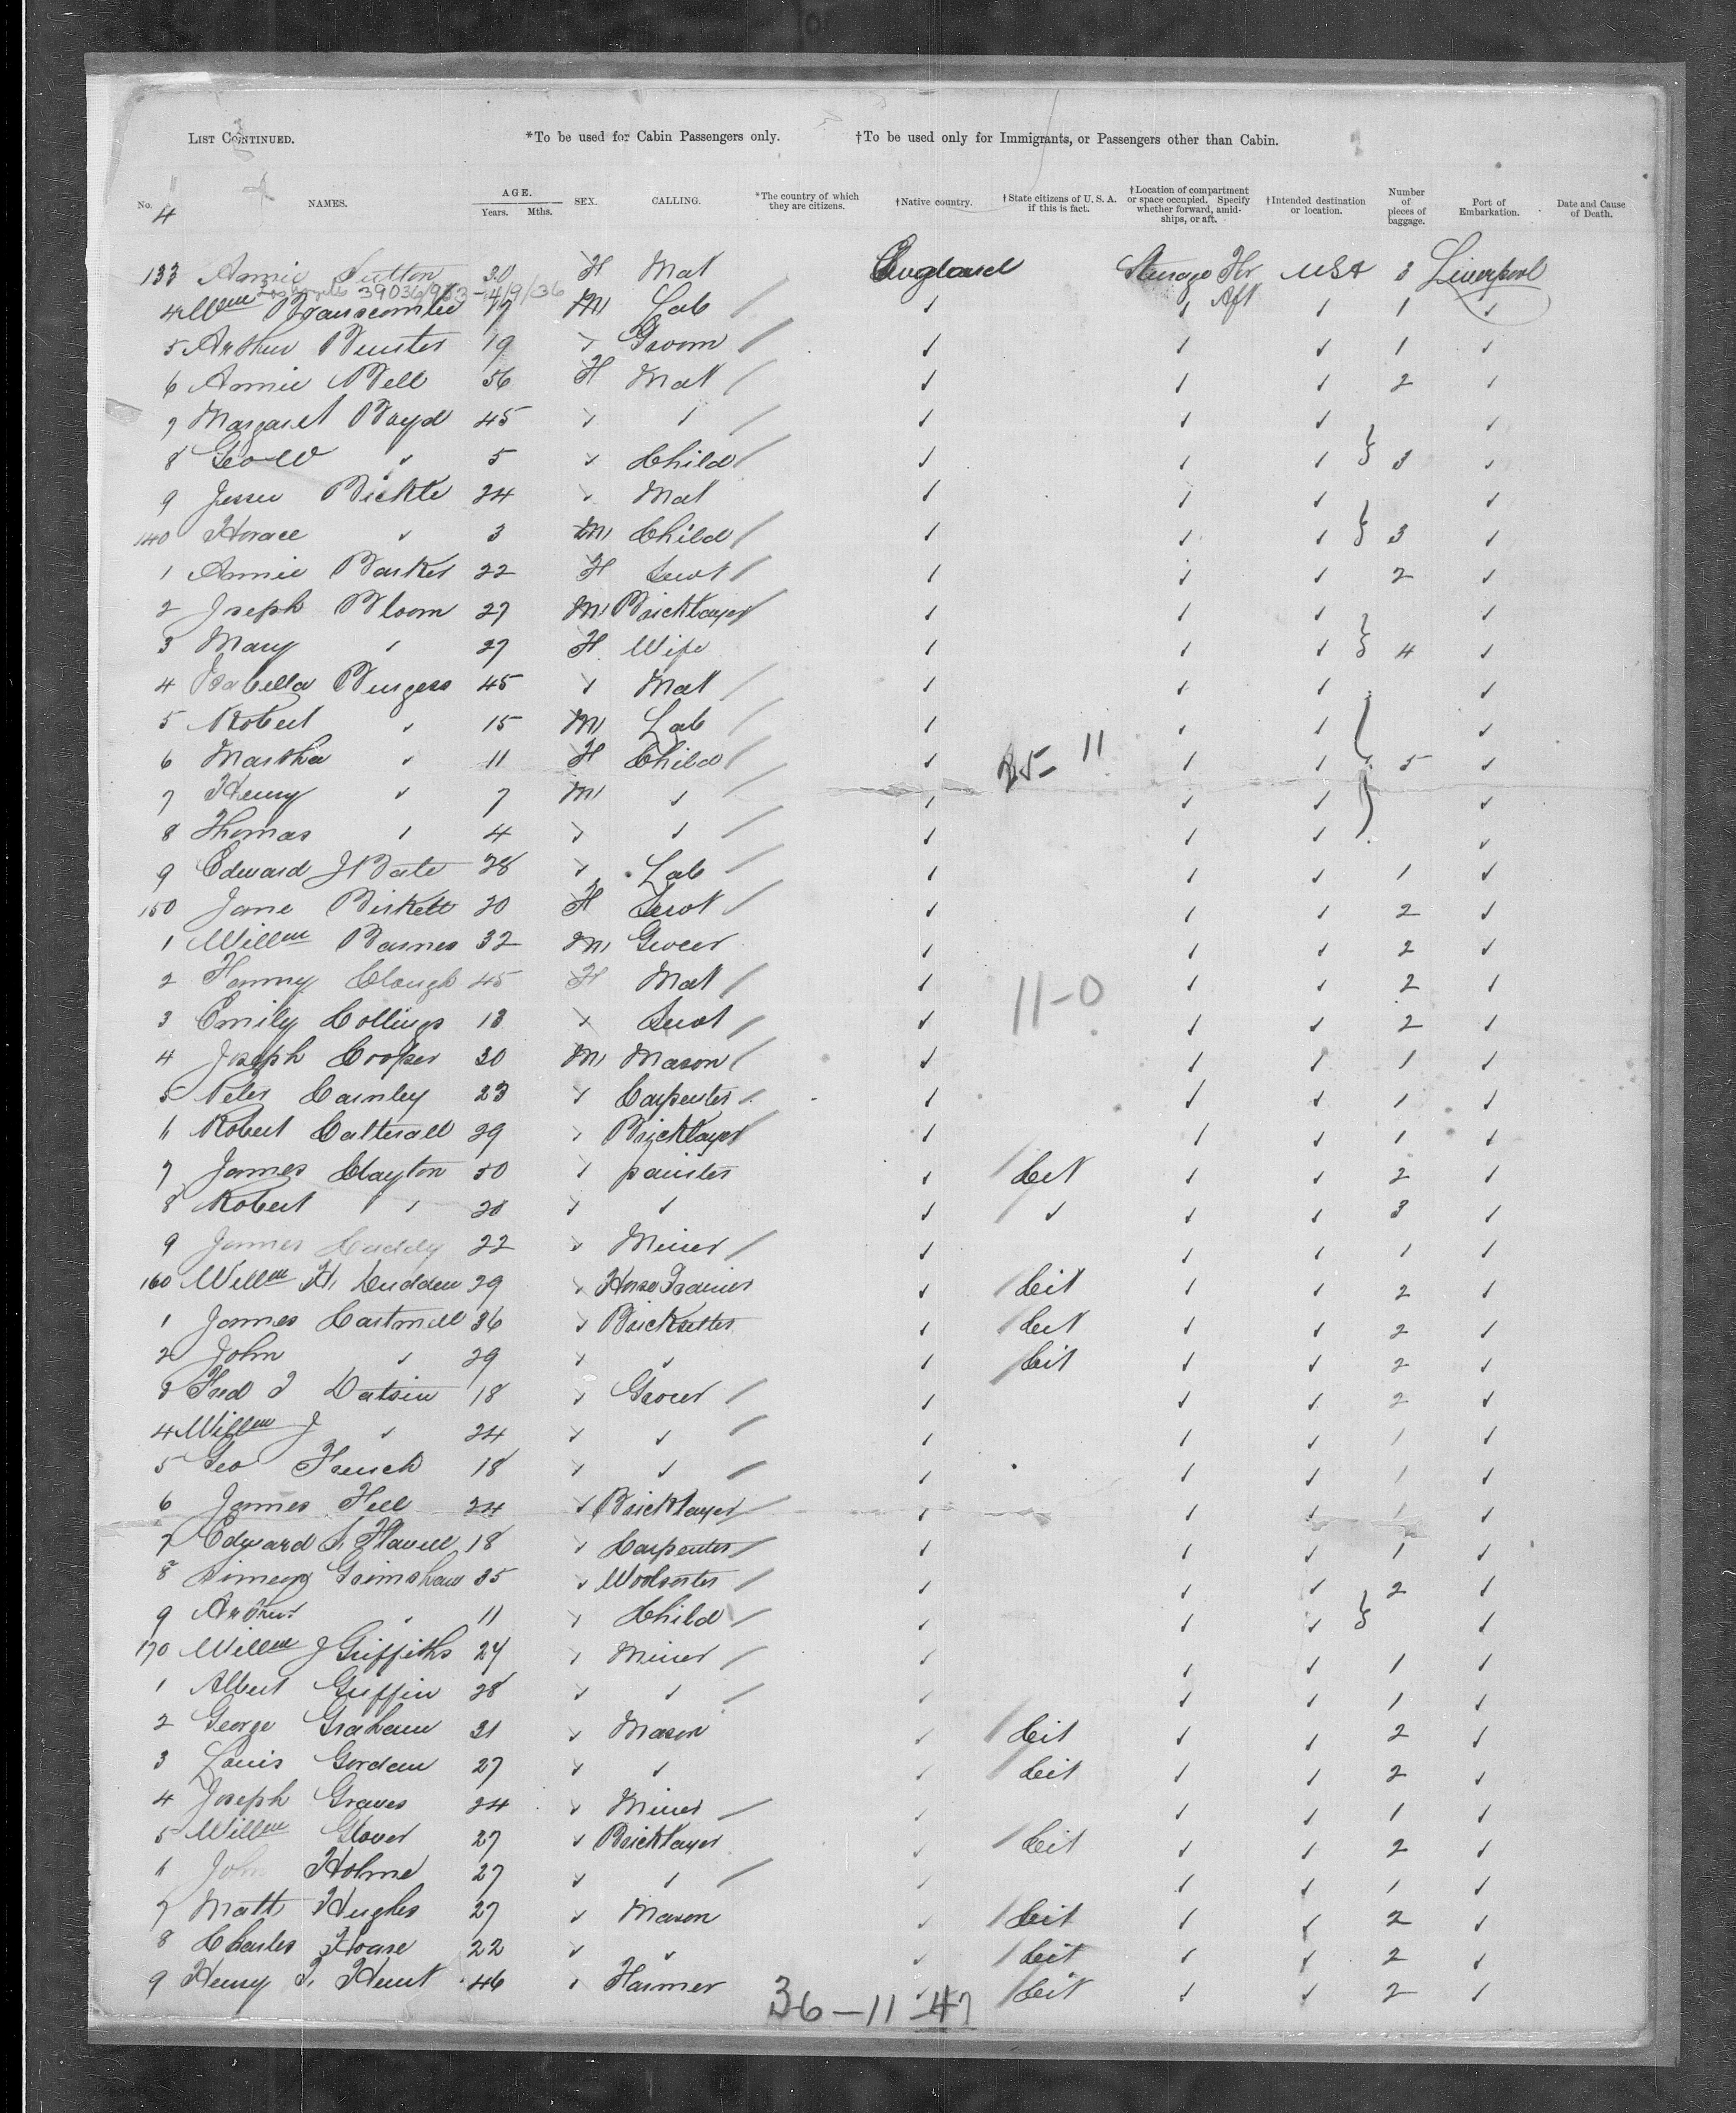 LIST CONTINUED. *To be used for Cabin Passengers only. †To be used only for Immigrants, or Passengers other than Cabin.
No. NAMES. AGE. Years. Mths. SEX. CALLING. *The country of which they are citizens. †Native country. †State citizens of U. S. A. if this is fact. †Location of compartment or space occupied. Specify whether forward, amidships, or aft. †Intended destination or location. Number of pieces of baggage. Port of Embarkation. Date and Cause of Death.
4
133 Annie Sutton 30 H Mat England Aft USA 3 Liverpool
39036/983-4/9/36
4 Wm Branscombe M Lab / ✓ ✓ ✓ 1 ✓
5 Arthur 19 ✓ Groom / ✓ ✓ ✓ 1 ✓
6 Annie Bell 56 H Mat / ✓ ✓ ✓ 2 ✓
7 Margaret Boyd 45 ✓ ✓ / ✓ ✓ ✓ ✓
8 Geo W ✓ 5 ✓ Child / ✓ ✓ ✓ } 3 ✓
9 Jessie Bickle 24 ✓ Mat ✓ ✓ ✓ ✓
140 Horace ✓ 3 M Child / ✓ ✓ ✓ } 3 ✓
1 Annie Barker 22 H Servt / ✓ ✓ ✓ 2 ✓
2 Joseph Bloom 27 M Bricklayer / ✓ ✓ ✓ ✓
3 Mary ✓ 27 H Wife ✓ ✓ ✓ } 4 ✓
4 Isabella Burgess 45 ✓ Mat / ✓ ✓ ✓ ✓
5 Robert ✓ 15 M Lab / ✓ ✓ ✓ ✓
6 Martha ✓ 11 H Child / ✓ 25-11 ✓ ✓ } 5 ✓
7 Henry ✓ 7 M ✓ / ✓ ✓ ✓ ✓
8 Thomas ✓ 4 ✓ ✓ / ✓ ✓ ✓ ✓
9 Edward J Bate 28 ✓ Lab / ✓ ✓ ✓ 1 ✓
150 Jane Birkett 20 H Servt / ✓ ✓ ✓ 2 ✓
1 Willm Barnes 32 M Grocer ✓ ✓ ✓ 2 ✓
2 Fanny Clough 45 H Mat / ✓ 11-0 ✓ ✓ 2 ✓
3 Emily Collings 13 ✓ Servt / ✓ ✓ ✓ 2 ✓
4 Joseph Cooper 30 M Mason / ✓ ✓ ✓ 1 ✓
5 Peter Carnley 23 ✓ Carpenter / ✓ ✓ ✓ 1 ✓
6 Robert Catterall 29 ✓ Bricklayer / ✓ ✓ ✓ 1 ✓
7 James Clayton 50 ✓ painter ✓ / Cit ✓ ✓ 2 ✓
8 Robert ✓ 20 ✓ ✓ ✓ / ✓ ✓ ✓ 3 ✓
9 James Caddy 22 ✓ Miner / ✓ ✓ ✓ 1 ✓
160 Willm H. Cudden 29 ✓ Horse Trainer ✓ / Cit ✓ ✓ 2 ✓
1 James Cartmell 36 ✓ Bricksetter ✓ / Cit ✓ ✓ 2 ✓
2 John ✓ 29 ✓ ✓ ✓ / Cit ✓ ✓ 2 ✓
3 Fred J Datsin 18 ✓ Grocer / ✓ ✓ ✓ 2 ✓
4 Willm J ✓ 24 ✓ ✓ / ✓ ✓ ✓ 1 ✓
5 Geo French 18 ✓ ✓ / ✓ ✓ ✓ 1 ✓
6 James 24 ✓ Bricklayer / ✓ ✓ ✓ 1 ✓
7 Edward S. Flavell 18 ✓ Carpenter / ✓ ✓ ✓ 1 ✓
8 Simeon Grimshaw 35 ✓ Woolsorter / ✓ ✓ ✓ 2 ✓
9 Arthur ✓ 11 ✓ Child / ✓ ✓ ✓ } ✓
170 Willm J Griffiths 24 ✓ Miner / ✓ ✓ ✓ 1 ✓
1 Albert Griffin 28 ✓ ✓ / ✓ ✓ ✓ 1 ✓
2 George Graham 31 ✓ Mason ✓ / Cit ✓ ✓ 2 ✓
3 Louis Gordon 27 ✓ ✓ ✓ / Cit ✓ ✓ 2 ✓
4 Joseph Graves 24 ✓ Miner / ✓ ✓ ✓ 1 ✓
5 Willm Glover 27 ✓ Bricklayer ✓ / Cit ✓ ✓ 2 ✓
6 John Holme 27 ✓ ✓ / ✓ ✓ ✓ 1 ✓
7 Matt Hughes 27 ✓ Mason ✓ / Cit ✓ ✓ 2 ✓
8 Charles Hoare 22 ✓ ✓ ✓ / Cit ✓ ✓ 2 ✓
9 Henry T. Hunt 46 ✓ Farmer ✓ / Cit ✓ ✓ 2 ✓
36-11-47